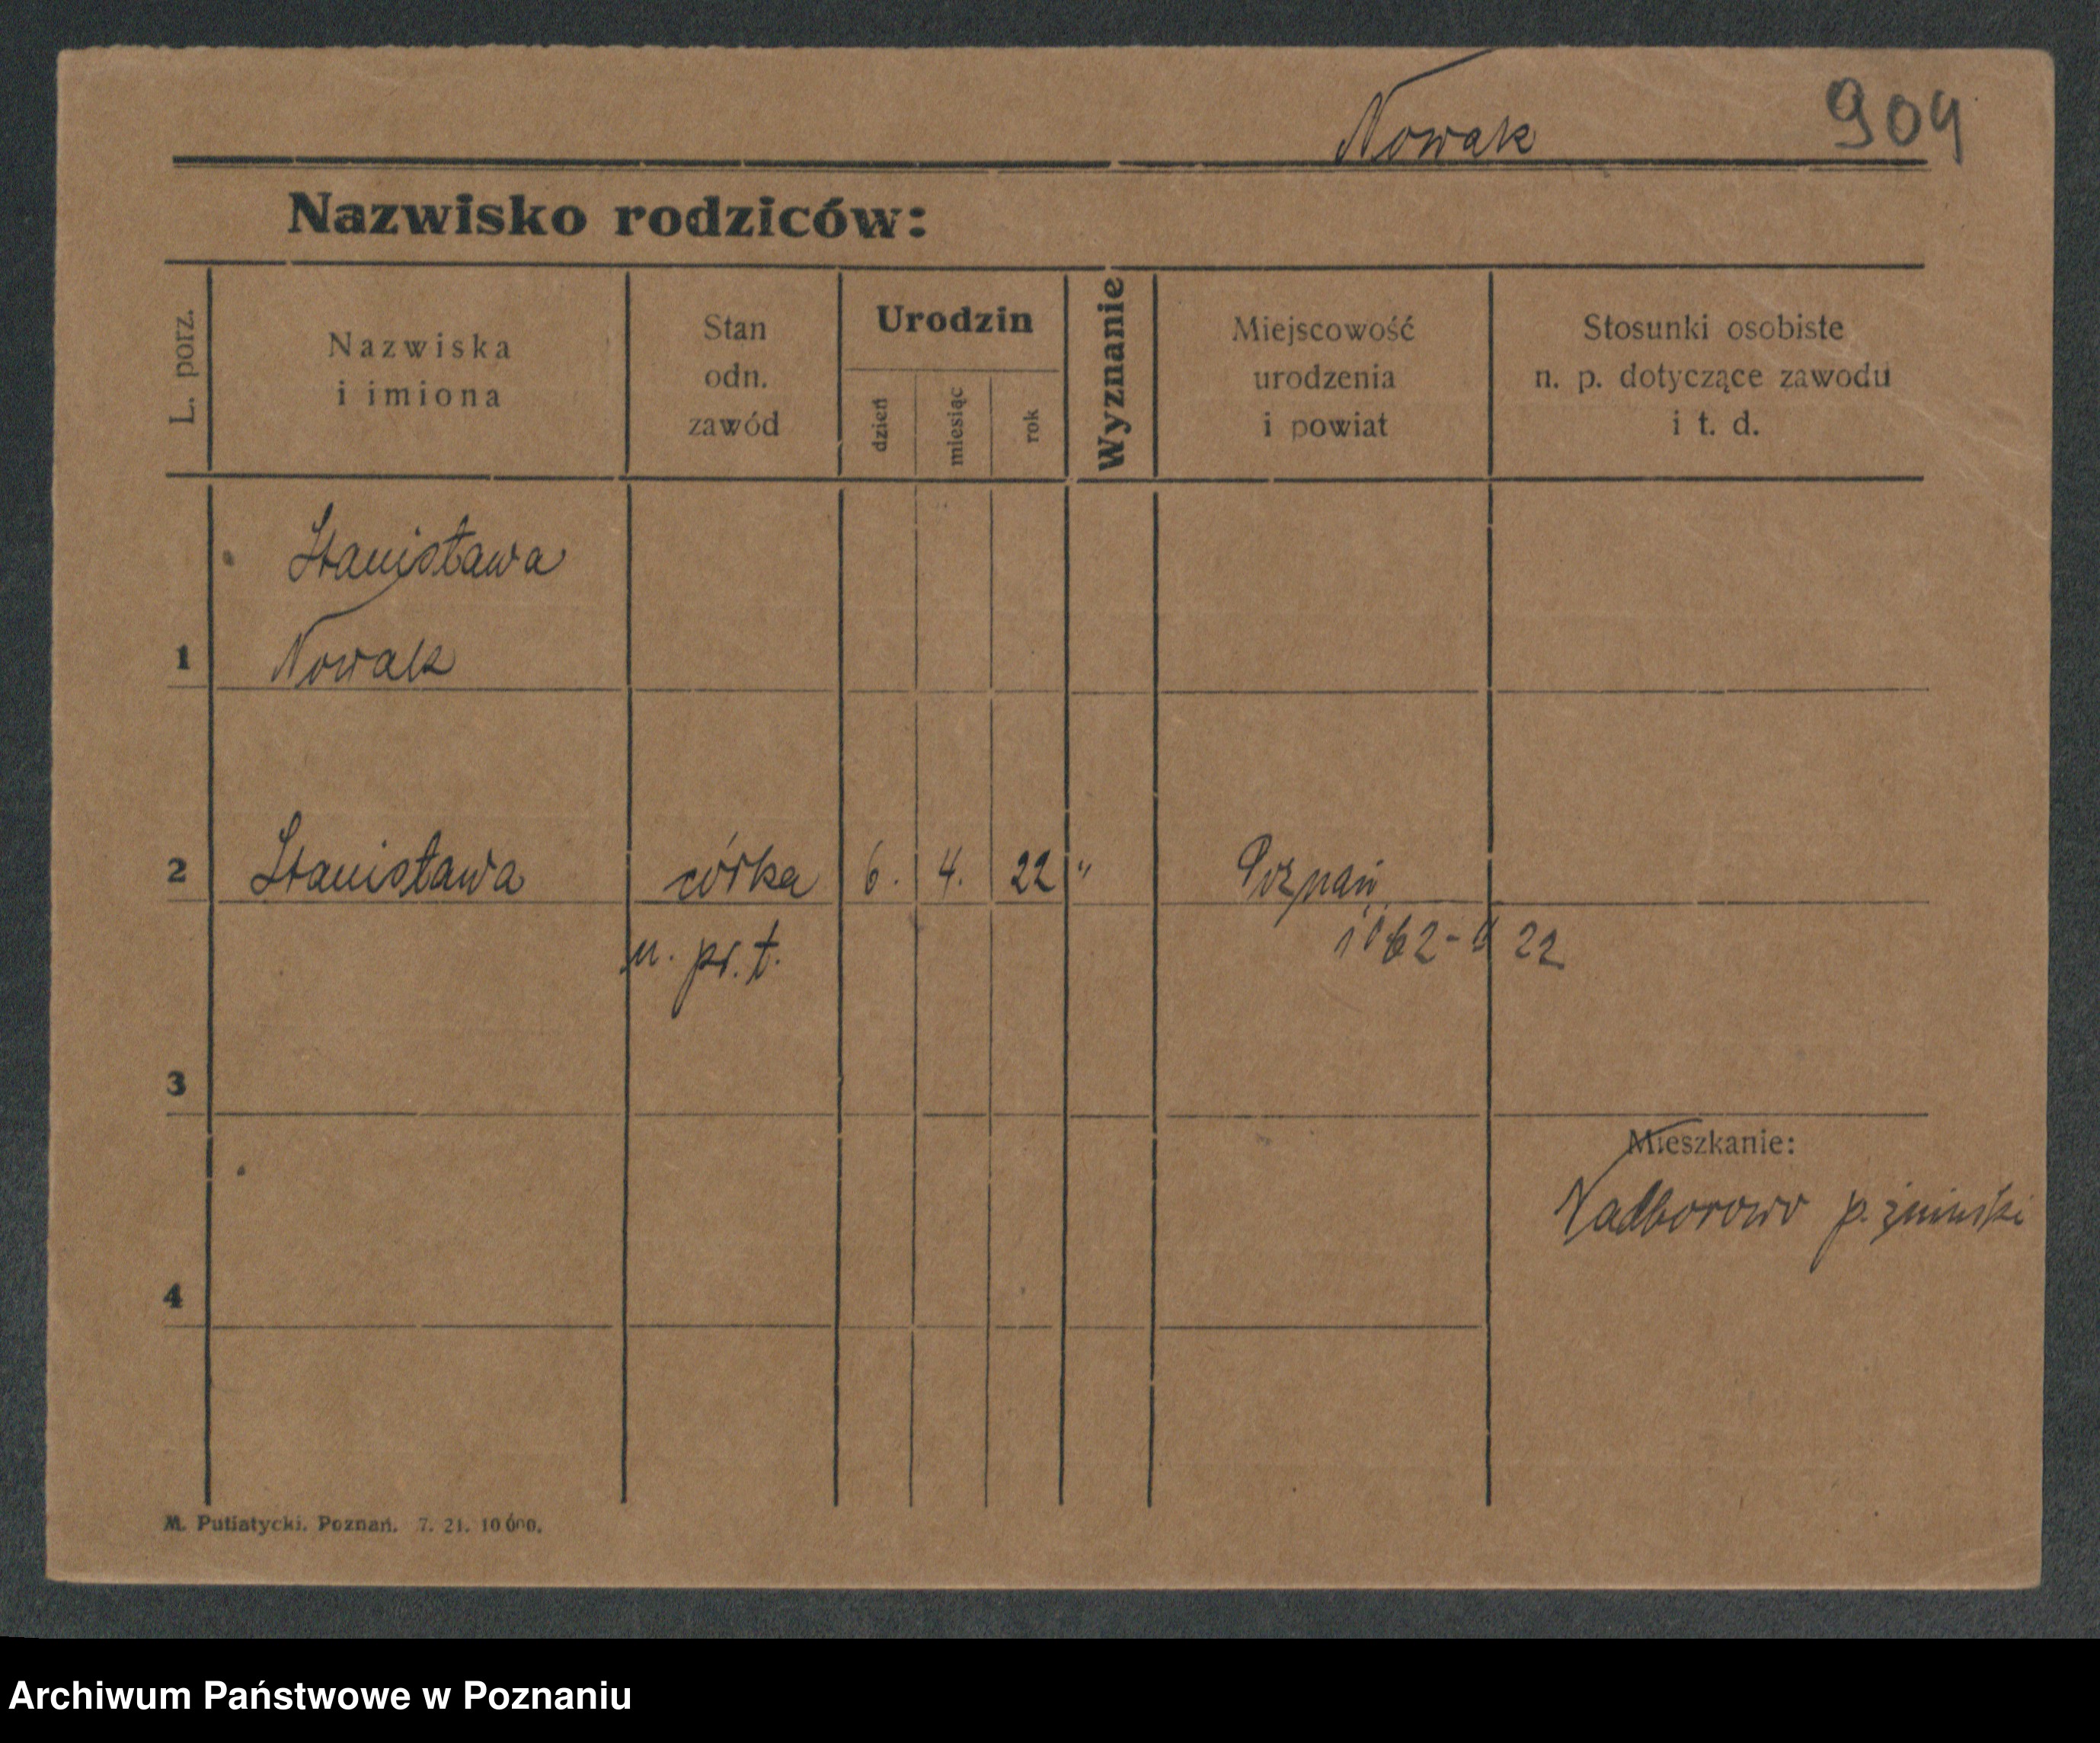 Nowak 904
Nazwisko rodziców:
L. porz.
Nazwiska
i imiona
Stan
odn.
zawód
Urodzin
dzień
miesiąc
rok
Wyznanie
Miejscowość
urodzenia
i powiat
Stosunki osobiste
n. p. dotyczące zawodu
i t. d.
Stanisława
1 Nowak
2 Stanisława córka 6. 4. 22 " Poznań
n. pr. t. 22
3
Mieszkanie:
Nadborowo p. żniński
4
M. Putiatycki. Poznań. 7. 21. 10 000.
Archiwum Państwowe w Poznaniu